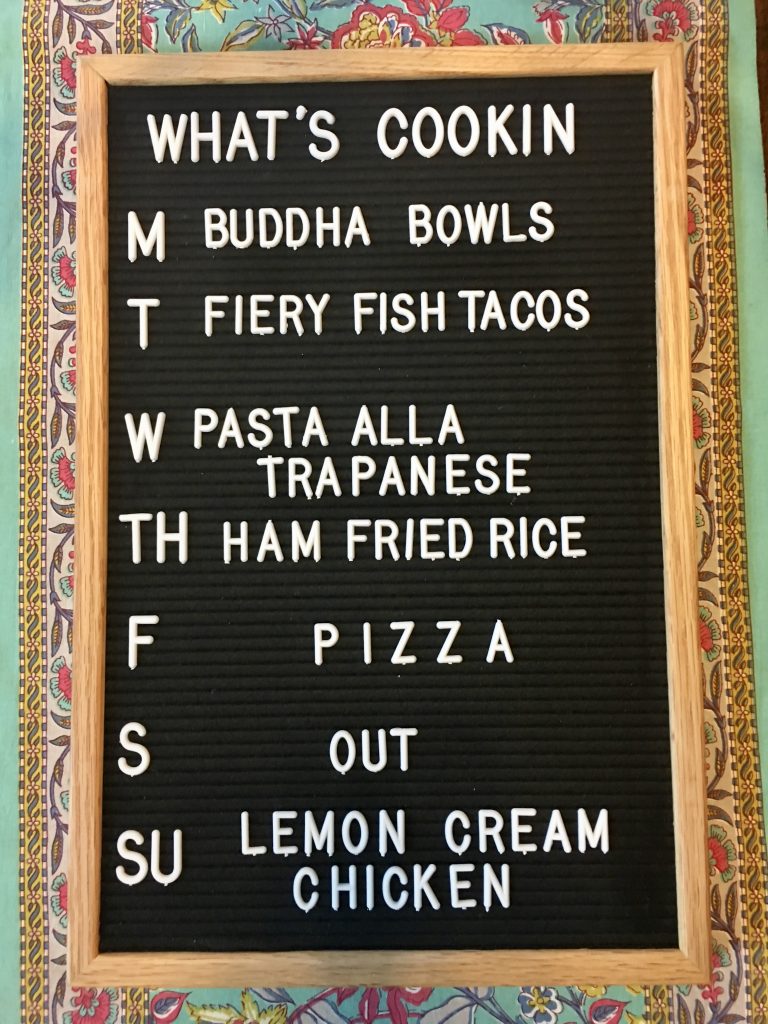 WHAT'S COOKIN
M BUDDHA BOWLS
T FIERY FISH TACOS
W PASTA ALLA
TRAPANESE
TH HAM FRIED RICE
F PIZZA
S OUT
SU LEMON CREAM
CHICKEN